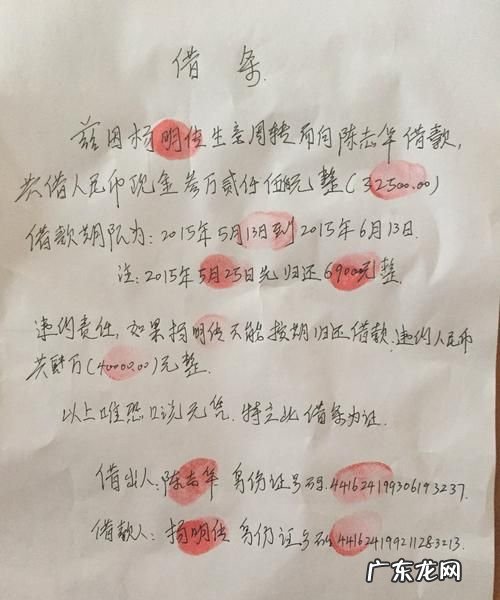 借条
兹因杨明传生意周转而向陈志华借款，
共借人民币现金叁万贰仟伍佰元整（32500.00）
借款期限为：2015年5月13日到2015年6月13日
注：2015年5月25日先归还6900元整.
违约责任，如果杨明传不能按期归还借款.违约人民币
共肆万（40000.00）元整.
以上唯恐口说无凭.特立此借条为证.
借出人：陈志华 身份证号码.441624199306193237.
借款人：杨明传 身份证号码441624199211283213.
广东龙网